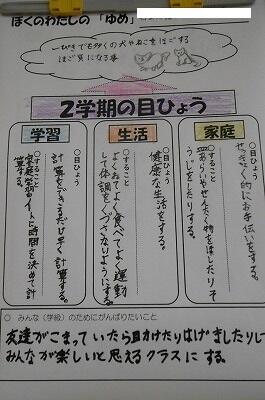 ぼくのわたしの「ゆめ」
一ぴきでも多くの犬やねこをほごする
ほご員になる事
2学期の目ひょう
学習
○目ひょう
計算をできるだけ早く計算する。
○すること
家庭学習ノートに時間を決めて計算する。
生活
○目ひょう
健康な生活をする。
○すること
よくねてよく食べてよく運動
して体調をくずさないようにする。
家庭
○目ひょう
せっきょく的にお手伝いをする。
○すること
皿あらいやせんたく物をほしたりそ
うじをしたりする。
○ みんな（学級）のためにがんばりたいこと
友達がこまっていたら助けたりはげましたりして
みんなが楽しいと思えるクラスにする。